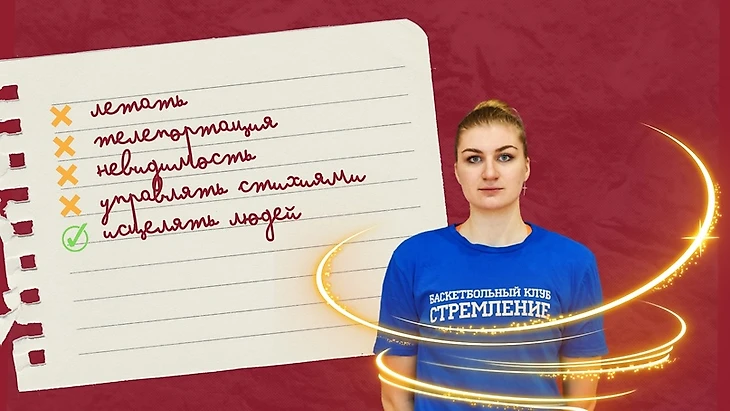 летать
телепортация
невидимость
управлять стихиями
исцелять людей
БАСКЕТБОЛЬНЫЙ КЛУБ
СТРЕМЛЕНИЕ